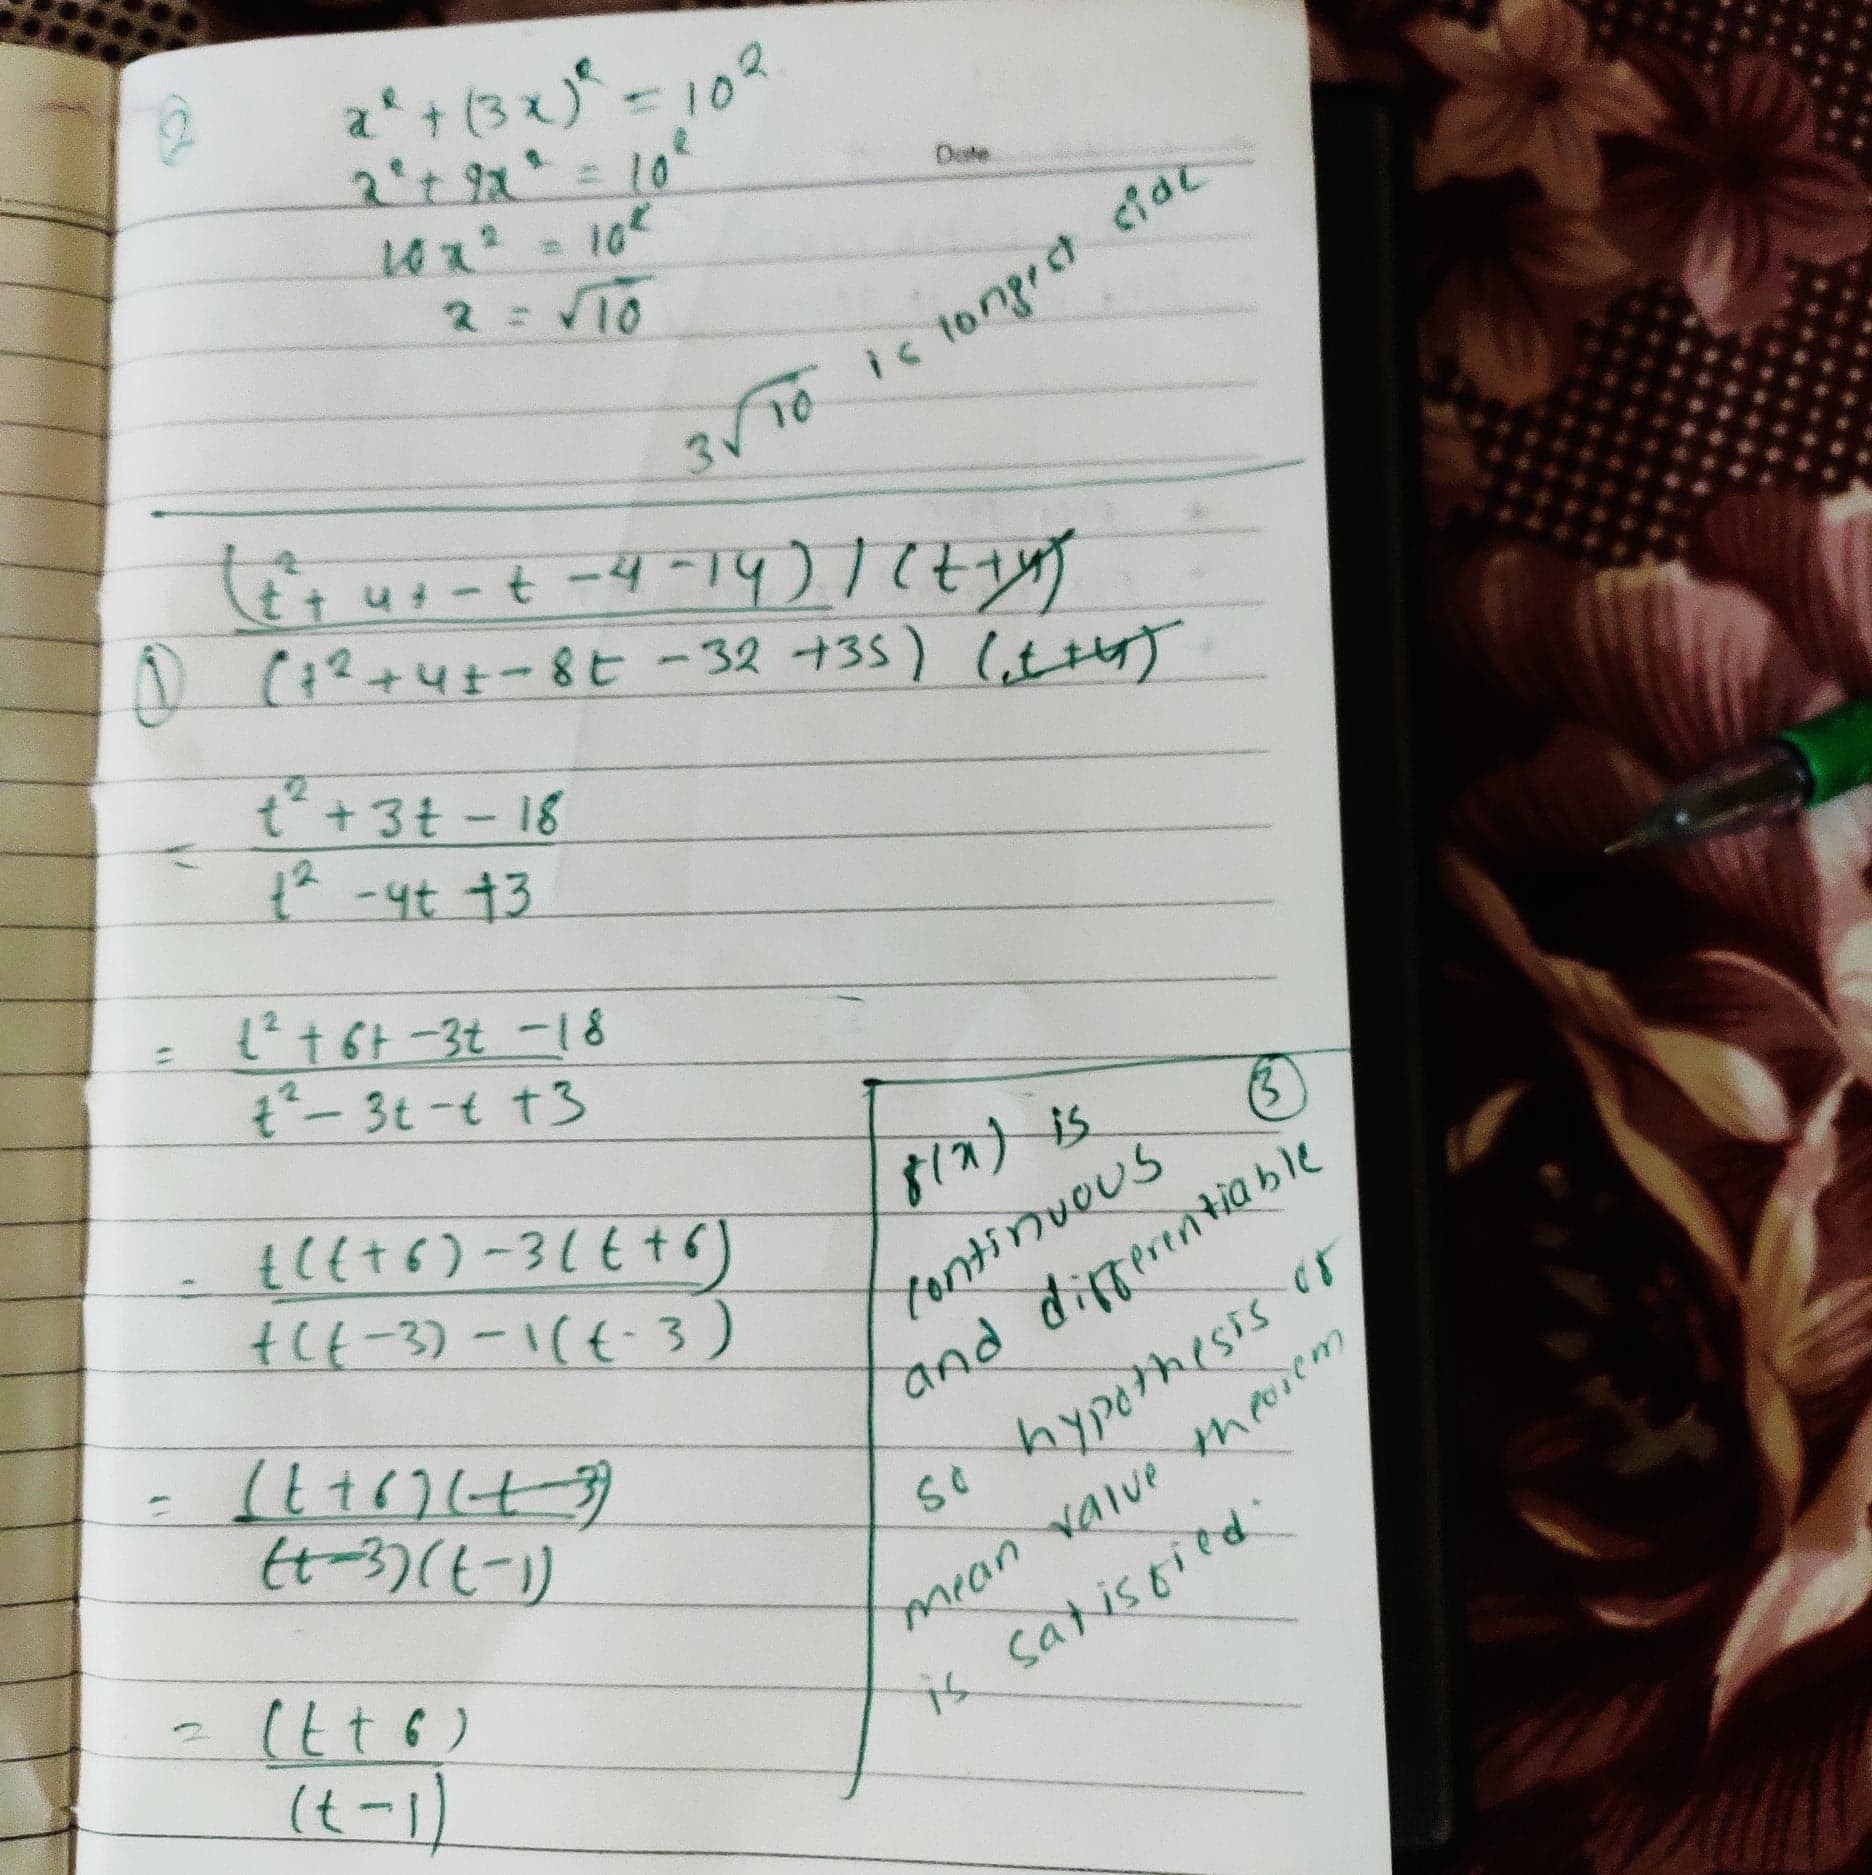 2
x² + (3x)² = 10²
x² + 9x² = 10²
Date
10x² = 10²
x = √10
3√10 is longest side
(t² + 4t - t - 4 - 14) / (t+4)
1 (t² + 4t - 8t - 32 + 35) (t+4)
= t² + 3t - 18
t² - 4t + 3
= t² + 6t - 3t - 18
t² - 3t - t + 3
= t(t+6) - 3(t+6)
t(t-3) - 1(t-3)
= (t+6)(t-3)
(t-3)(t-1)
= (t+6)
(t-1)
3
f(x) is
continuous
and differentiable
so hypothesis of
mean value theorem
is satisfied.